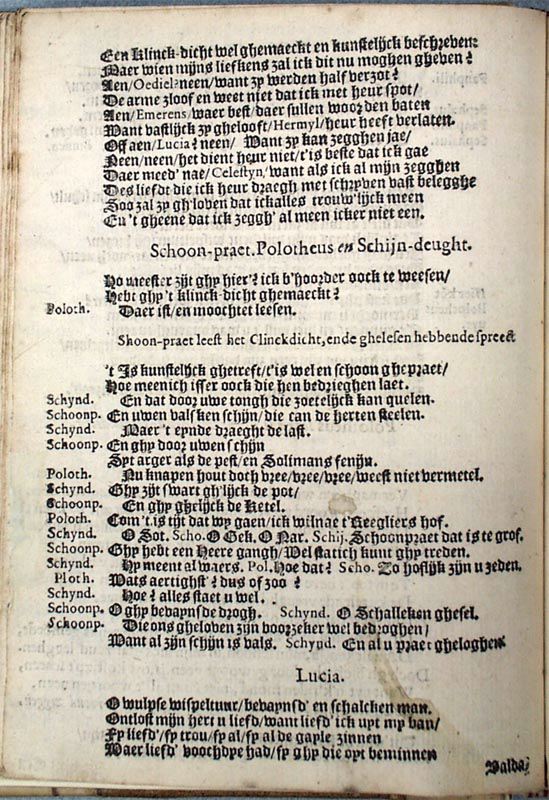 Een Klinck-dicht wel ghemaeckt en kunstelijck beschreven:
Maer wien mijns liefkens zal ick dit nu moghen gheven?
Aen/Oediel? neen/want zy werden half verzot?
De arme sloof en weet niet dat ick met heur spot/
Aen/Emerens/waer best/daer sullen woorden baten
Want vastlijck zy ghelooft/Hermyl/heur heeft verlaten.
Off aen/Lucia? neen/ Want zy kan zegghen jae/
Neen/neen/het dient heur niet/t'is beste dat ick gae
Daer meed' nae/Celestyn/want als ick al mijn zegghen
Des liefdt die ick heur draegh met schryven vast belegghe
Soo zal zy gh'loven dat ickalles trouw'lijck meen
En't gheene dat ick zeggh' al meen icker niet een.
Schoon-praet. Polotheus en Schijn-deught.
Ho meester zijt ghy hier? ick b'hoorder oock te weesen/
Hebt ghy 't klinck-dicht ghemaeckt?
Poloth. Daer ist/en moochtet leesen.
Skoon-praet leest het Clinckdicht, ende ghelesen hebbende spreeckt
't Is kunstelijck ghetreft/t'is wel en schoon ghepraet/
Hoe meenich isser oock die hen bedrieghen laet.
Schynd. En dat door uwe tongh die zoetelijck kan quelen.
Schoonp. En uwen valsken schijn/die can de herten steelen.
Schynd. Maer 't eynde draeght de last.
Schoonp. En ghy door uwen schijn
Syt arger als de pest/en Solimans fenijn.
Poloth. Nu knapen hout doch vree/vree/vree/weest niet vermetel.
Schynd. Ghy zijt swart gh'lijck de pot/
Schoonp. En ghy ghelijck de Ketel.
Poloth. Com't is tijt dat wy gaen/ick wil nae t'Reegliers hof.
Schynd. O Sot. Scho. O Gek. O Nar. Schij. Schoonpraet dat is te grof.
Schoonp. Ghy hebt een Heere gangh/Wel statich kunt ghy treden.
Schynd. Hy meent al waers. Pol. Hoe dat? Scho. Zo hoflijk zijn u zeden.
Ploth. Wats aertighst? dus of zoo?
Schynd. Hoe? alles staet u wel.
Schoonp. O ghy bevaynsde drogh. Schynd. O Schalleken ghesel.
Schoonp. Die ons gheloven zijn voorzeker wel bedroghen/
Want al zijn schijn is vals. Schynd. En al u praet gheloghen.
Lucia.
O wulpse wispeltuur/bevaynsd' en schalcken man.
Ontlost mijn hert u liefd/want liefd' ick uyt my ban/
Sy liefd'/sy trou/sy al/sy al de gaple zinnen
Waer liefd' voochdye had/sy ghy die oyt beminnen
Valda,